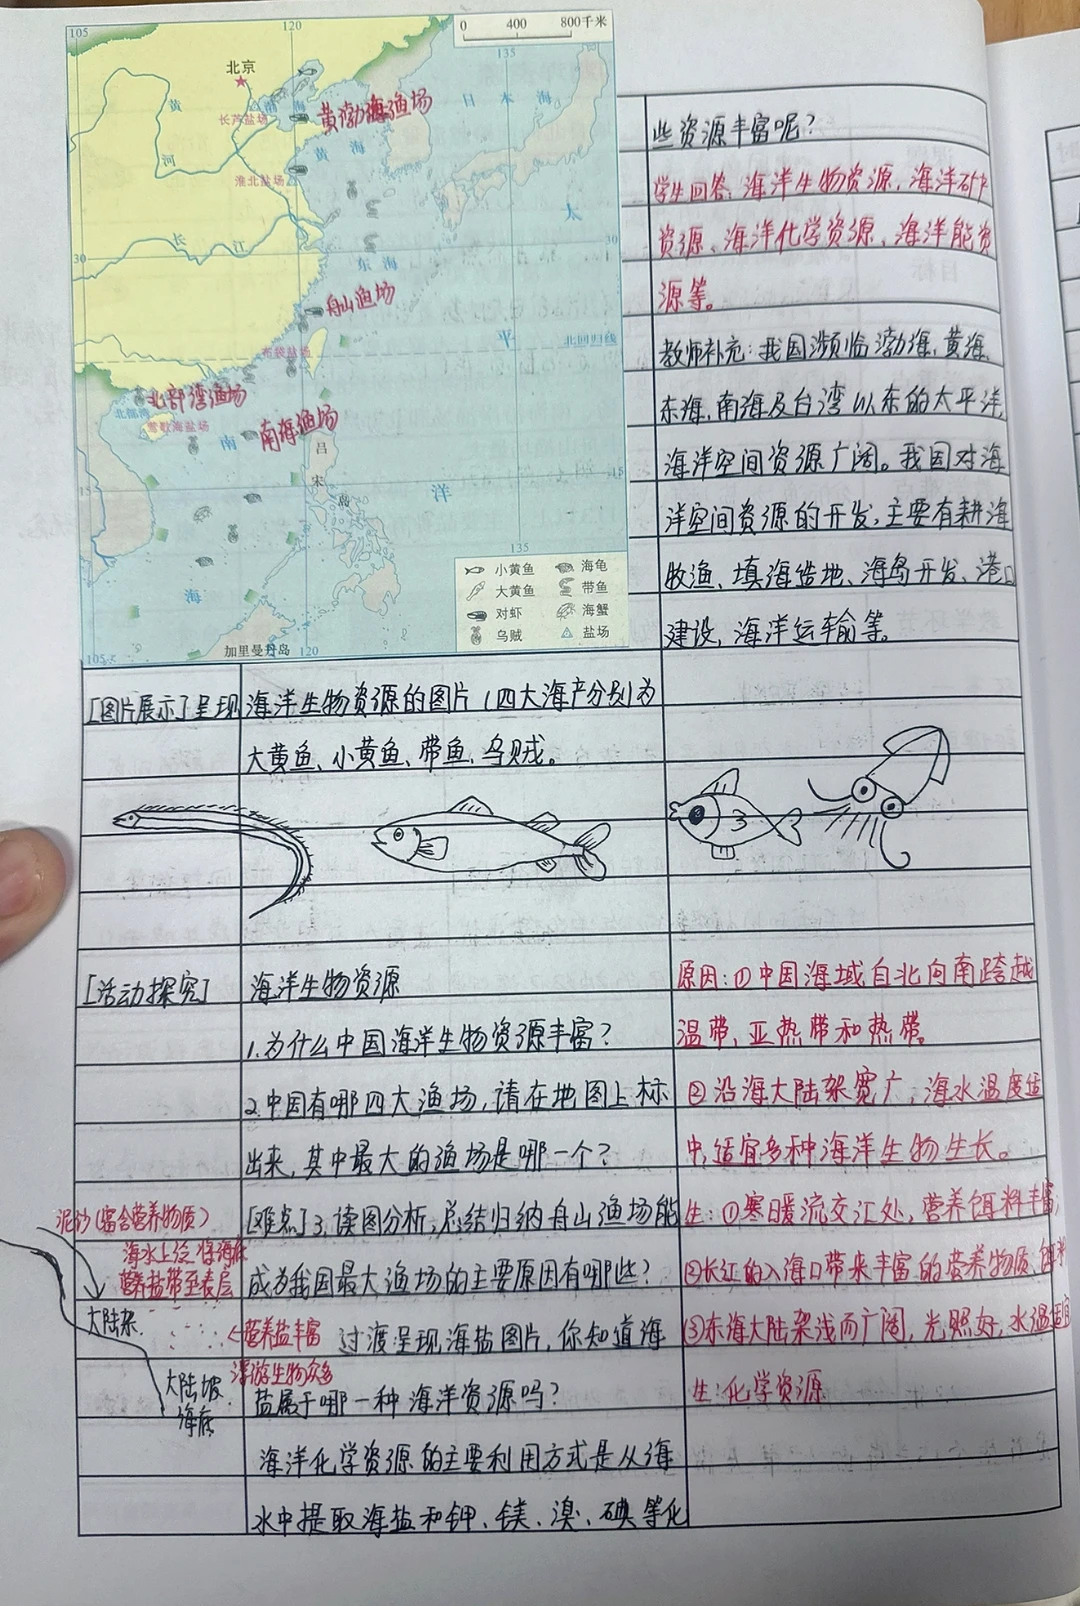 105
120
0 400 800千米
135
北京
黄渤海渔场
日本海
黄
渤海
长芦盐场
河
黄海
淮北盐场
太
长江
30
30
东海
舟山渔场
平
北回归线
布袋盐场
北部湾渔场
北部湾
莺歌海盐场
南海渔场
南
吕
宋
岛
15
15
洋
135
海
小黄鱼 海龟
大黄鱼 带鱼
对虾 海蟹
乌贼 盐场
105
加里曼丹岛 120
些资源丰富呢?
学生回答:海洋生物资源、海洋矿产
资源、海洋化学资源、海洋能资
源等。
教师补充:我国濒临渤海、黄海、
东海、南海及台湾以东的太平洋,
海洋空间资源广阔。我国对海
洋空间资源的开发,主要有耕海
牧渔、填海造地、海岛开发、港口
建设、海洋运输等。
[图片展示]呈现海洋生物资源的图片(四大海产分别为
大黄鱼、小黄鱼、带鱼、乌贼。
[活动探究]
海洋生物资源
1.为什么中国海洋生物资源丰富?
2.中国有哪四大渔场,请在地图上标
出来,其中最大的渔场是哪一个?
[难点]3.读图分析,总结归纳舟山渔场能
成为我国最大渔场的主要原因有哪些?
过渡呈现海盐图片,你知道海
盐属于哪一种海洋资源吗?
海洋化学资源的主要利用方式是从海
水中提取海盐和钾、镁、溴、碘等化
原因:①中国海域自北向南跨越
温带、亚热带和热带。
②沿海大陆架宽广,海水温度适
中,适宜多种海洋生物生长。
生:①寒暖流交汇处,营养饵料丰富;
②长江的入海口带来丰富的营养物质、饵料
③东海大陆架浅而广阔,光照好,水温适宜
生:化学资源
泥沙(富含营养物质)
海水上泛 将海底
营养盐带至表层
大陆架
←营养盐丰富
浮游生物众多
大陆坡
海底